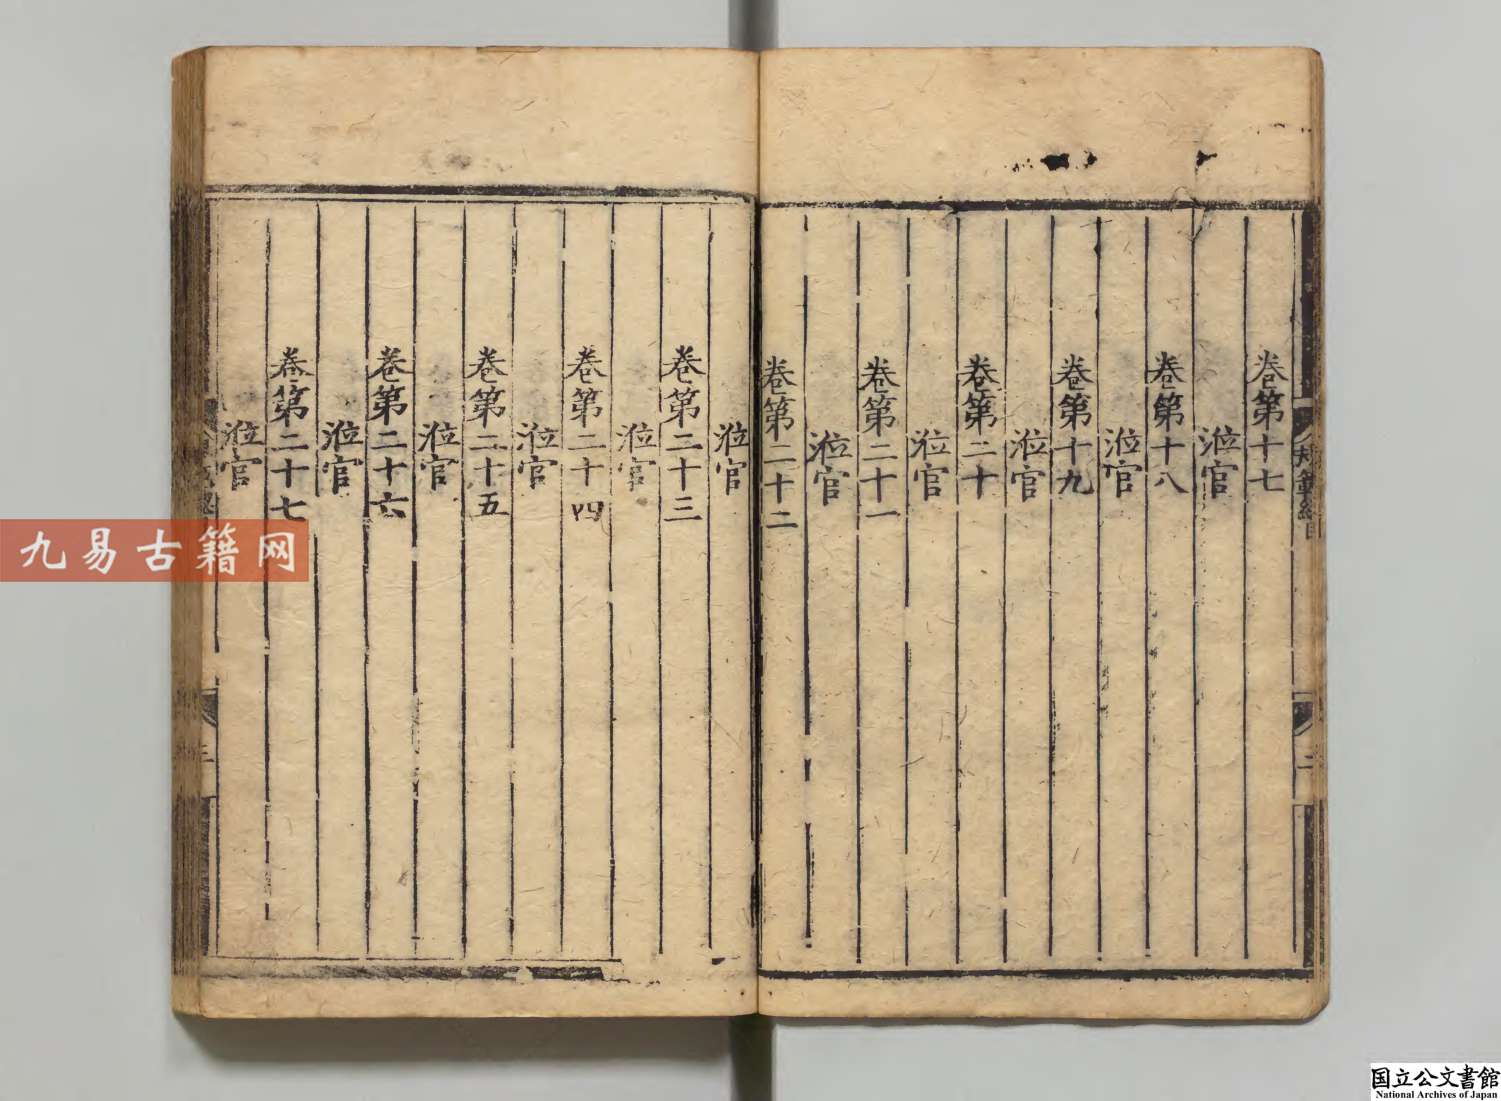 卷第十七
涖官
卷第十八
涖官
卷第十九
涖官
卷第二十
涖官
卷第二十一
涖官
卷第二十二
涖官
卷第二十三
涖官
卷第二十四
涖官
卷第二十五
涖官
卷第二十六
涖官
卷第二十七
涖官
二
三
九易古籍网
国立公文書館
National Archives of Japan